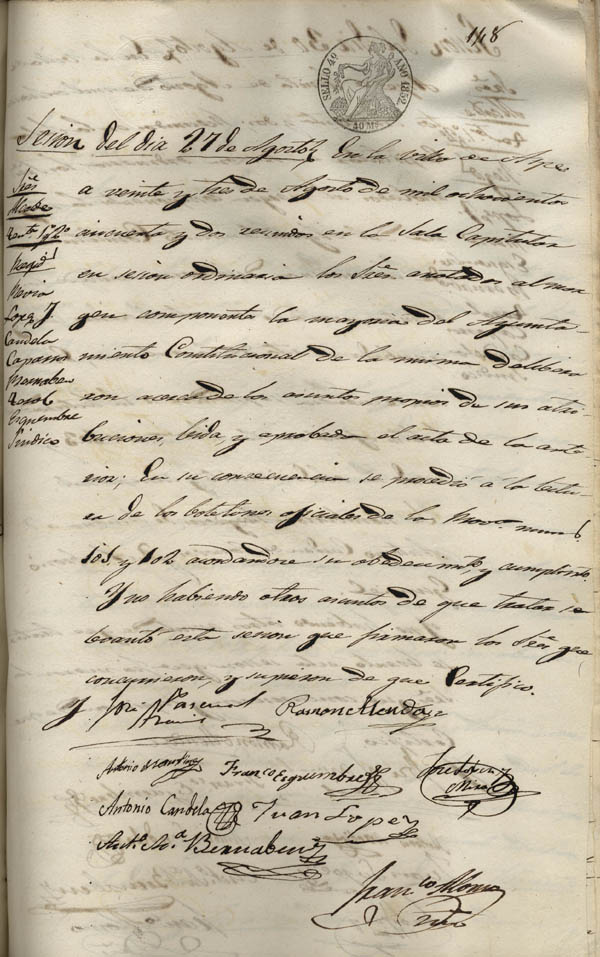 148
SELLO 4º AÑO 1852
40 Ms
Sesion del dia 27 de Agosto En la villa de Aspe
a veinte y tres de Agosto de mil ochocientos
cincuenta y dos reunidos en la Sala Capitular
en sesion ordinaria los Sres. anotados al mar
gen componen la mayoria del Ayunta-
miento Constitucional de la misma delibera
ron acerca de los asuntos propios de sus atri
buciones, leida y aprobada el acta de la ante-
rior; En su consecuencia se procedió a la lectu-
ra de los boletines oficiales de la Prova. nums.
101, y 102 acordandose su obedecimto. y cumplimto.
Y no habiendo otros asuntos de que tratar se
levantó esta sesion que firmaron los Sres. que
concurrieron, y supieron de que Certifico.
Sres.
Alcalde
Tente. 1º y 2º
Regid.
Pavia
Lopez J.
Candela
Caparros
Bernabeu
Esquembre
Sindico
José Pascual
Ramon Mendo
Antonio
Franco. Esquembre
José Lopez
Mira
Antonio Candela
Juan Lopez
Anto. Ma. Bernabeu
Franco. Alonso